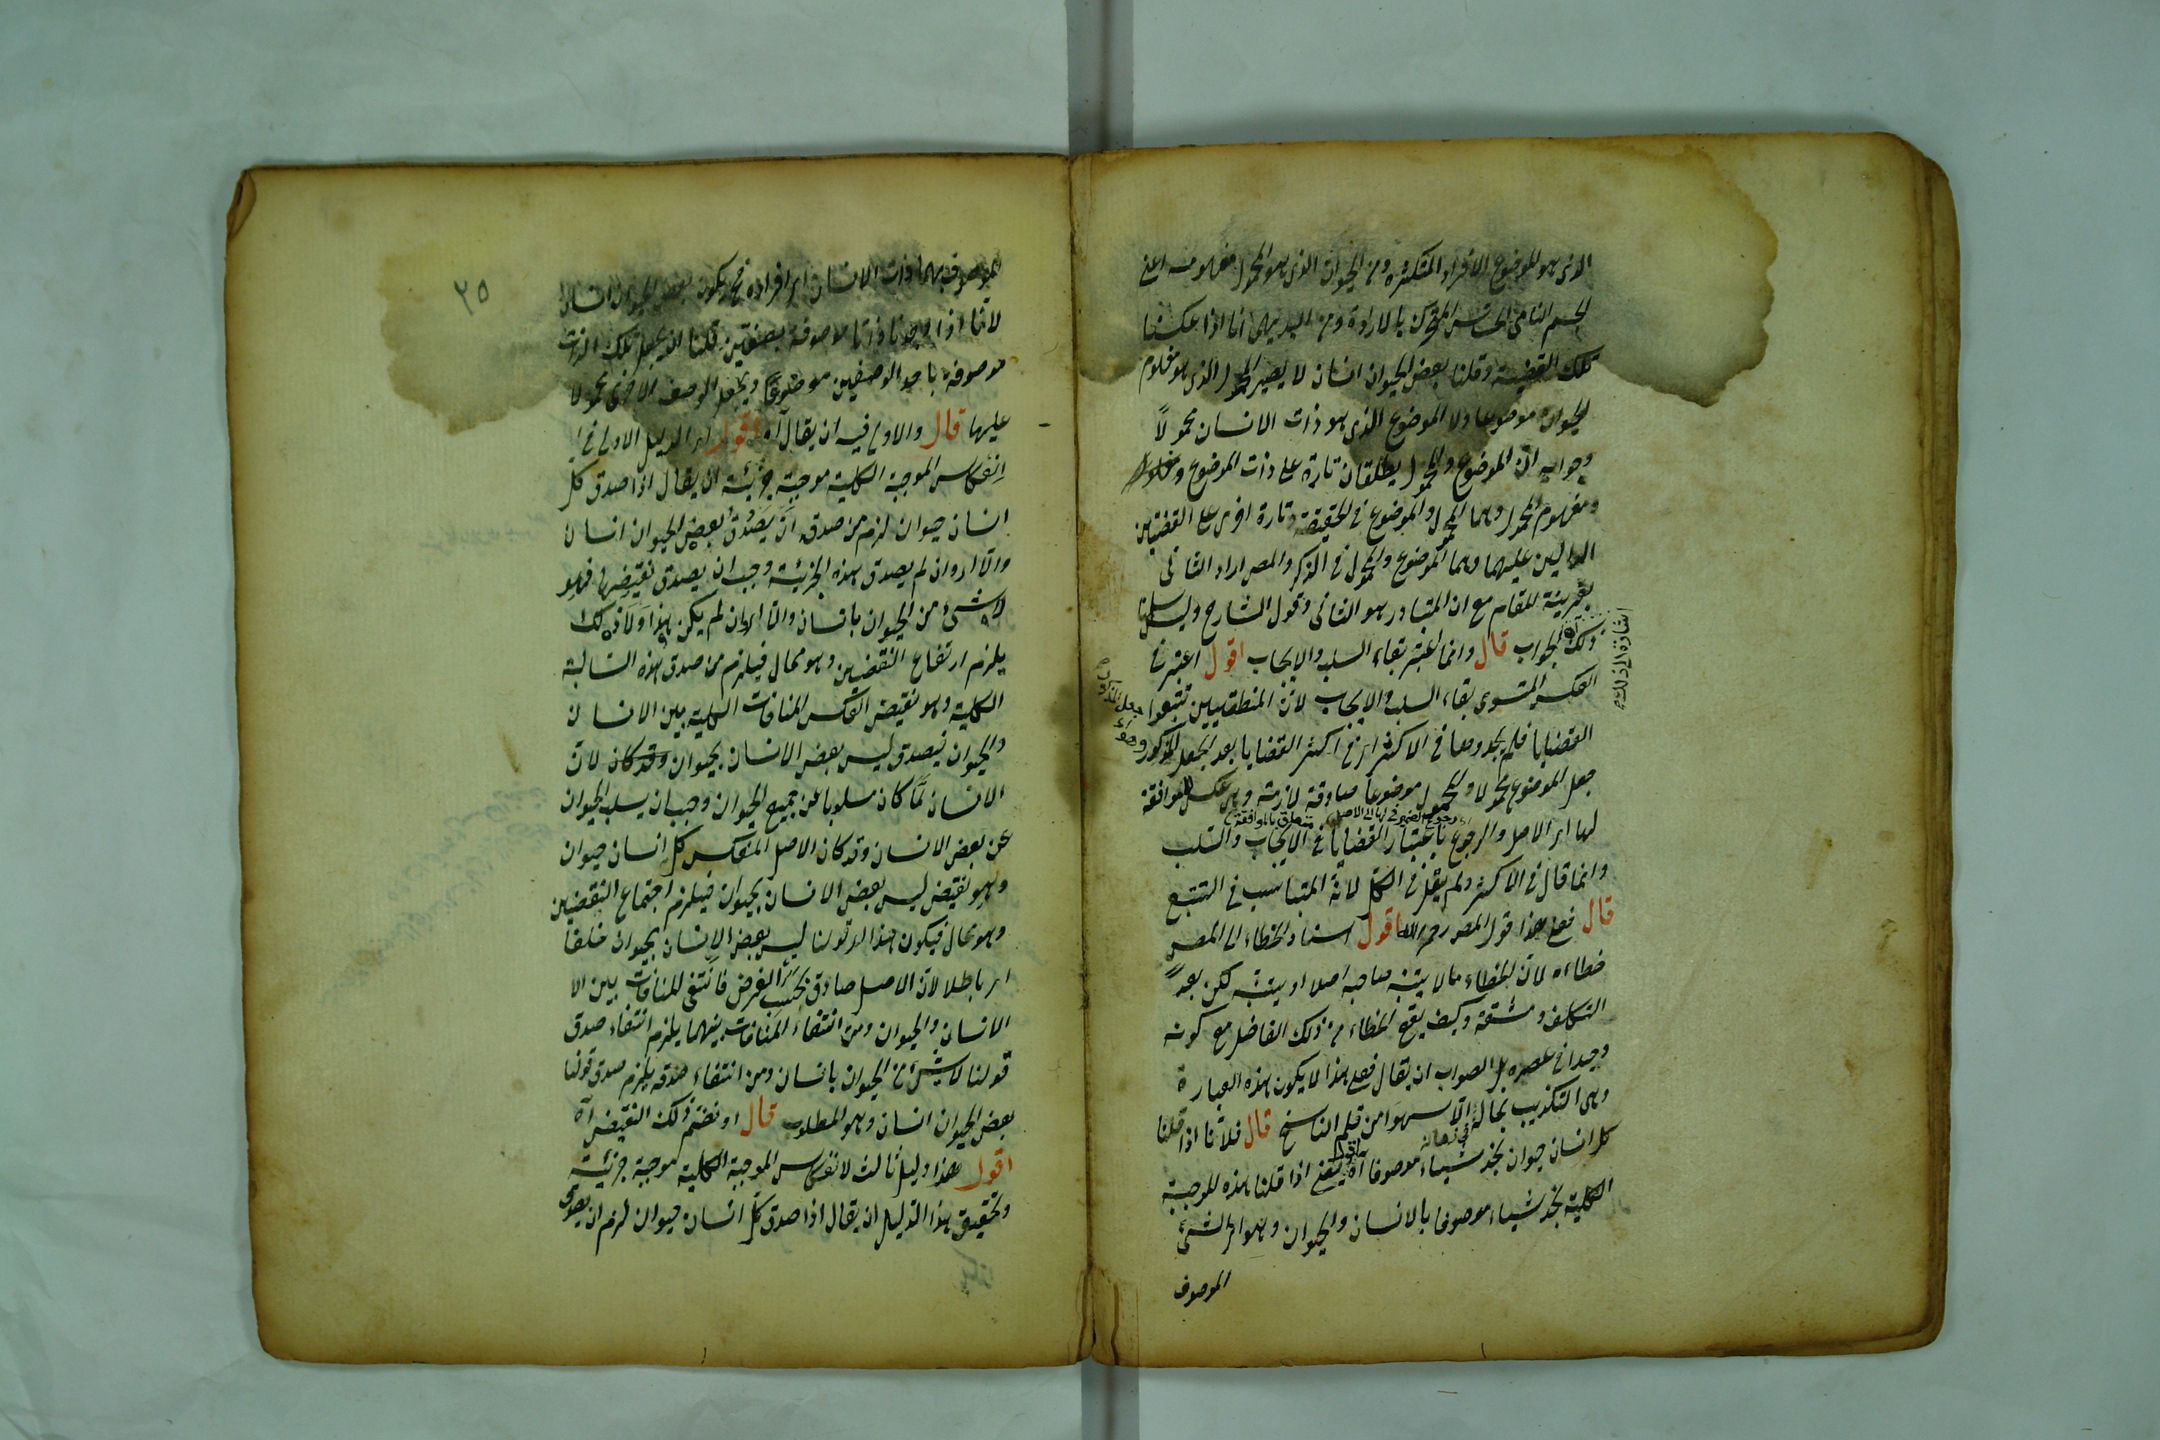 الذى هو الموضوع الافراد المتكثرة ومن الحيوان الذى هو المحمول مفهومه اعنى
الجسم النامى الحساس المتحرك بالارادة ومن البديهى انا اذا عكسنا
تلك القضية وقلنا بعض الحيوان انسان لا يصير المحمول الذى هو مفهوم
الحيوان موضوعا ولا الموضوع الذى هو ذات الانسان محمولاً
وجوابه ان الموضوع والمحمول يطلقان تارة على ذات الموضوع
ومفهوم المحمول وهما المحمول والموضوع فى الحقيقة وتارة اخرى على اللفظين
الدالين عليهما وهما الموضوع والمحمول فى الذكر والمصـ اراد الثانى
بقرينة المقام مع ان المتبادر هو الثانى وقول الشارح وليس لنا
ذلك الجواب قال وانما اعتبر بقاء السلب والايجاب اقول اعتبر فى
اشارة الى ذلك
العكس المستوى بقاء السلب والايجاب لان المنطقيين تتبعوا
القضايا فلم يجدوها فى الاكثر اى فى اكثر القضايا بعد الجعل المذكور وهو
جعل الموضوع محمولا والمحمول موضوعا صادقة لازمة وهى عكس الموافقة
لها اى الاصل والرجوع باعتبار القضايا فى الايجاب والسلب
متعلق بالموافقة
وانما قال فى الاكثر ولم يقل فى الكل لانه المتناسب فى التتبع
قال فعلى هذا قول المصـ رحمه الله اقول اسناد الخطاء الى المصـ
خطاءه لان الخطاء مما لا يتنبه صاحبه اصلا او يتنبه لكن بعد
التكلف ومشقة وكيف يقع الخطاء من ذلك الفاضل مع كونه
وحيدا فى عصره بل الصواب ان يقال فعلى هذا لا يكون هذه العبارة
وهى التكذيب بحاله الا سهوا من قلم الناسخ قال فلانا اذا قلنا
كل انسان حيوان نجد شيـاء موصوفا آه اقول يعنى اذا قلنا هذه الموجبة
الكلية نجد شيـاء موصوفا بالانسان والحيوان وهو اى الشئ
الموصوف
٢٥
الموصوف بهما ذات الانسان اى افراده فح يكون بعض الحيوان انسانا
لانا اذا وجدنا ذاتا موصوفة بصفتين قلنا ان يجعل تلك الذات
موصوفة باحد الوصفين موضوعا ويجعل الوصف الاخرى محمولا
عليها قال والاولى فيه ان يقال آه اقول اى الدليل الاولى فى
انعكاس الموجبة الكلية موجبة جزئية ان يقال اذا صدق كل
انسان حيوان لزم من صدقه ان يصدق بعض الحيوان انسان
والا اى وان لم يصدق هذه الجزئية وجب ان يصدق نقيضها فهو
لا شئ من الحيوان بانسان والا اى وان لم يكن هذا ولا ذلك
يلزم ارتفاع النقيضين وهو محال فيلزم من صدق هذه السالبة
الكلية وهو نقيض العكس المنافات الكلية بين الانسان
والحيوان فيصدق ليس بعض الانسان بحيوان وقد كان لان
الانسان لما كان مسلوبا عن جميع الحيوان وجب ان يسلب الحيوان
عن بعض الانسان وقد كان الاصل المنعكس كل انسان حيوان
وهو نقيض ليس بعض الانسان بحيوان فيلزم اجتماع النقيضين
وهو محال فيكون هذا اى قولنا ليس بعض الانسان بحيوان خلفا
اى باطلا لان الاصل صادق بحسب الفرض فانتفى المنافات بين الا
الانسان والحيوان ومن انتفاء المنافات بينهما يلزم انتفاء صدق
قولنا لا شئ من الحيوان بانسان ومن انتفاء صدقه يلزم صدق قولنا
بعض الحيوان انسان وهو المطلوب قال او نضم ذلك النقيض آه
اقول هذا دليل ثالث لانعكاس الموجبة الكلية موجبة جزئية
وتحقيق هذا الدليل ان يقال اذا صدق كل انسان حيوان لزم ان يصدق